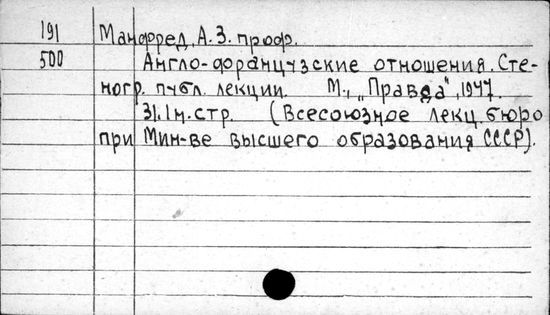 191 Манфред, А. З. проф.
500 Англо-французские отношения. Сте-
ногр. публ. лекции. М., „Правда", 1947.
31, 1 н. стр. (Всесоюзное лекц. бюро
при Мин-ве высшего образования СССР).